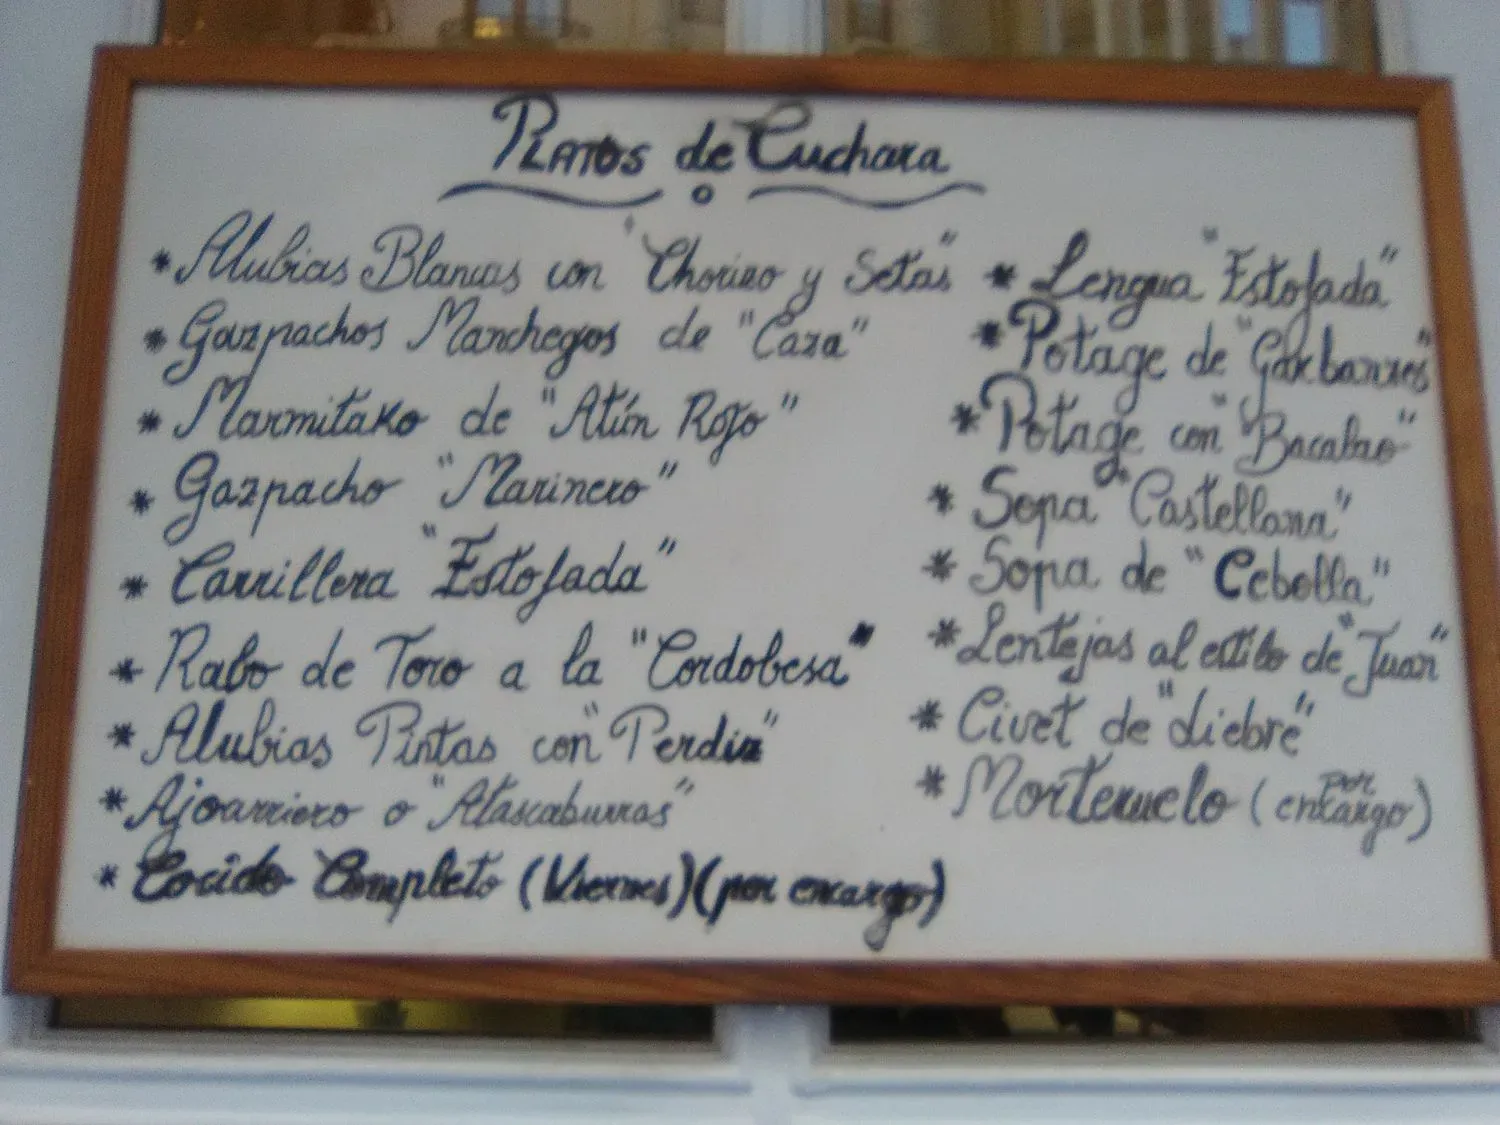 Platos de Cuchara
* Alubias Blancas con "Chorizo y Setas"
* Gazpachos Manchegos de "Caza"
* Marmitako de "Atún Rojo"
* Gazpacho "Marinero"
* Carrillera "Estofada"
* Rabo de Toro a la "Cordobesa"
* Alubias Pintas con "Perdiz"
* Ajoarriero o "Atascaburras"
* Cocido Completo (Viernes) (por encargo)
* Lengua "Estofada"
* Potage de "Garbanzos"
* Potage con "Bacalao"
* Sopa "Castellana"
* Sopa de "Cebolla"
* Lentejas al estilo de "Juan"
* Civet de "Liebre"
* Morteruelo (por encargo)